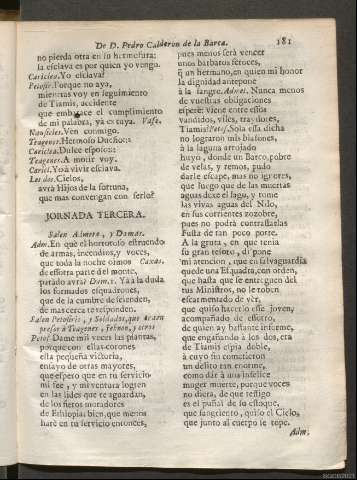 De D. Pedro Calderon de la Barca.
181
no pierda otra en su hermosura;
la esclava es por quien yo vengo.
Cariclea. Yo esclava?
Petosir. Porque no aya,
mientras voy en seguimiento
de Tiamis, accidente
que embarace el cumplimiento
de mi palabra, ya en tuya. Vase.
Nausicles. Ven conmigo.
Teagenes. Hermoso Dueño:
Cariclea. Dulce esposo:
Teagenes. A morir voy.
Caricl. Yo à vivir esclava.
Los dos. Cielos,
avrà hijos de la fortuna,
que mas convengan con serlo?
JORNADA TERCERA.
Salen Admeta, y Damas.
Adm. En què el horroroso estruendo
de armas, incendios, y voces,
que toda la noche oimos Caxas.
de essotra parte del monte,
parado avrà? Dam. 1. Ya à la duda
los formados esquadrones,
que de la cumbre descienden,
de mas cerca te responden.
Salen Petosiris, y Soldados, que traen
presos à Teagenes, y otros
Petos. Dame mil veces las plantas,
porque con ellas corones
esta pequeña victoria,
ensayo de otras mayores,
que espero que en tu servicio
mi fee, y mi ventura logren
en las lides que te aguardan,
de los fieros moradores
de Ethiopia: bien, que menos
harè en tu servicio entonces,
pues menos serà vencer
unos barbaros feroces,
q̃ un hermano, en quien mi honor
la dignidad antepone
à la sangre. Admet. Nunca menos
de vuestras obligaciones
esperè: viene entre essos
vandidos, viles, traydores,
Tiamis? Petos. Sola essa dicha
no lograron mis blasones,
à la laguna arrojado
huyò, donde un Barco, pobre
de velas, y remos, pudo
darle escape, mas no ignores,
que luego que de las muertas
aguas dexe el lago, y tome
las vivas aguas del Nilo,
en sus corrientes zozobre,
pues no podrà contrastarlas
Fusta de tan poco porte.
A la gruta, en que tenia
su gran tesoro, dì pone
mi atencion, que en salvaguardia
quede una Esquadra, con orden,
que hasta que se entreguen del
tus Ministros, no le roben
escarmentado de vèr,
que quiso hacerlo esse joven,
acompañado de essotro,
de quien ay bastante informe,
que engañando à los dos, era
de Tiamis espia doble,
à cuyo fin cometieron
un delito tan enorme,
como dàr à una infelice
muger muerte, porque voces
no diera, de que testigo
es el puñal de su estoque,
que sangriento, quiso el Cielo,
que junto al cuerpo le tope.
Adm.